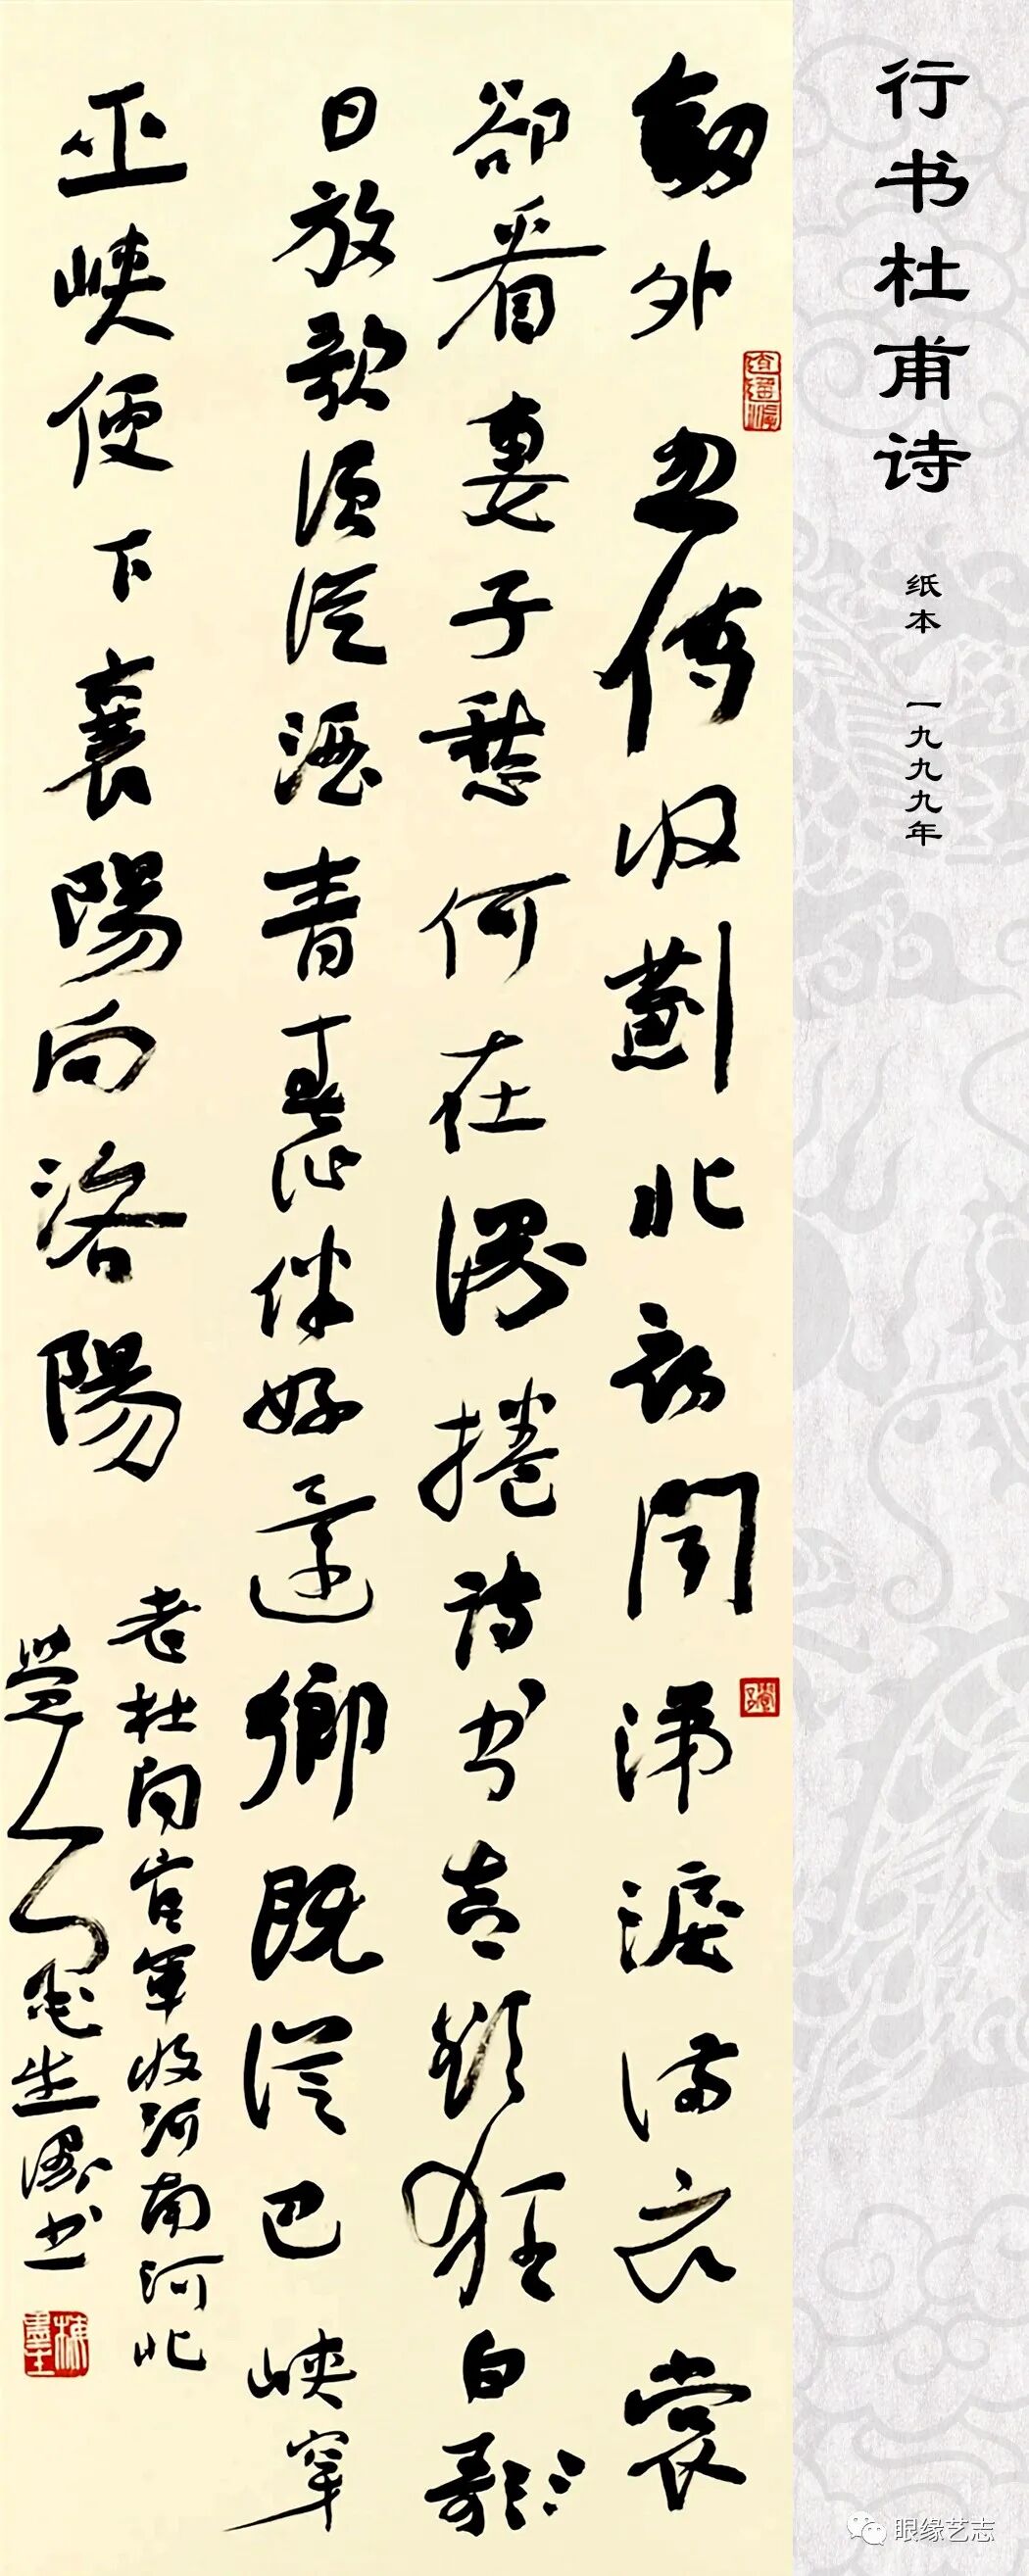 行书杜甫诗
纸本 一九九九年
劒外忽傳收薊北初聞涕淚滿衣裳
卻看妻子愁何在漫捲诗书喜欲狂白歌
日放歌须從酒青春作伴好還鄉既從巴峽穿
巫峽便下襄陽向洛陽
老杜闻官軍收河南河北
生
书
梅墨生
眼缘艺志